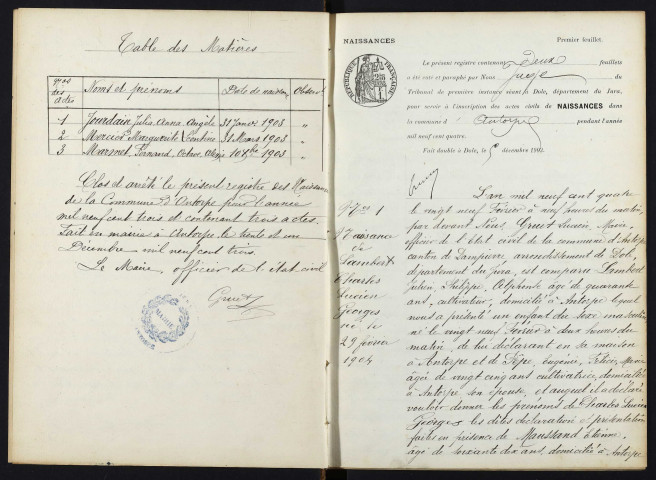 Table des Matières
Nos des actes
Noms et prénoms
Date de naissance
Observ
1 Jourdain Julia Anna Angèle 31 Janv 1903 "
2 Mercier Marguerite Léontine 31 Mars 1903 "
3 Marmet, Fernand, Octave, 10 Xbre 1903 "
Clos et arrêté le présent registre des Naissances
de la Commune d'Antorpe pour l'année
mil neuf cent trois et contenant trois actes.
Fait en mairie à Antorpe le trente et un
Décembre mil neuf cent trois.
Le Maire officier de l'état civil
Gruet
MAIRIE
NAISSANCES
Premier feuillet.
RÉPUBLIQUE FRANÇAISE
Le présent registre contenant Deux feuillets
a été coté et paraphé par Nous Juge du
Tribunal de première instance séant à Dole, département du Jura,
pour servir à l'inscription des actes civils de NAISSANCES dans
la commune d'Antorpe pendant l'année
mil neuf cent quatre.
Fait double à Dole, le décembre 1903.
No 1
Naissance
de
Lambert
Charles
Lucien
Georges
né le
29 février
1904
L'an mil neuf cent quatre
le vingt neuf Février à neuf heures du matin,
par devant Nous, Gruet Lucien, Maire,
officier de l'Etat civil de la commune d'Antorpe
canton de Dampierre, arrondissement de Dole,
département du Jura, est comparu Lambert
Julien, Philippe, Alphonse âgé de quarante
ans, cultivateur, domicilié à Antorpe lequel
nous a présenté un enfant du sexe masculin
né le vingt neuf Février à deux heures du
matin, de lui déclarant en sa maison
à Antorpe et de Pépe, Eugénie, Félicie, Marie
âgée de vingt cinq ans cultivatrice, domiciliée
à Antorpe son épouse, et auquel il a déclaré
vouloir donner les prénoms de Charles Lucien
Georges, les dites déclaration et présentation
faites en présence de Moussard Etienne,
âgé de soixante dix ans, domicilié à Antorpe